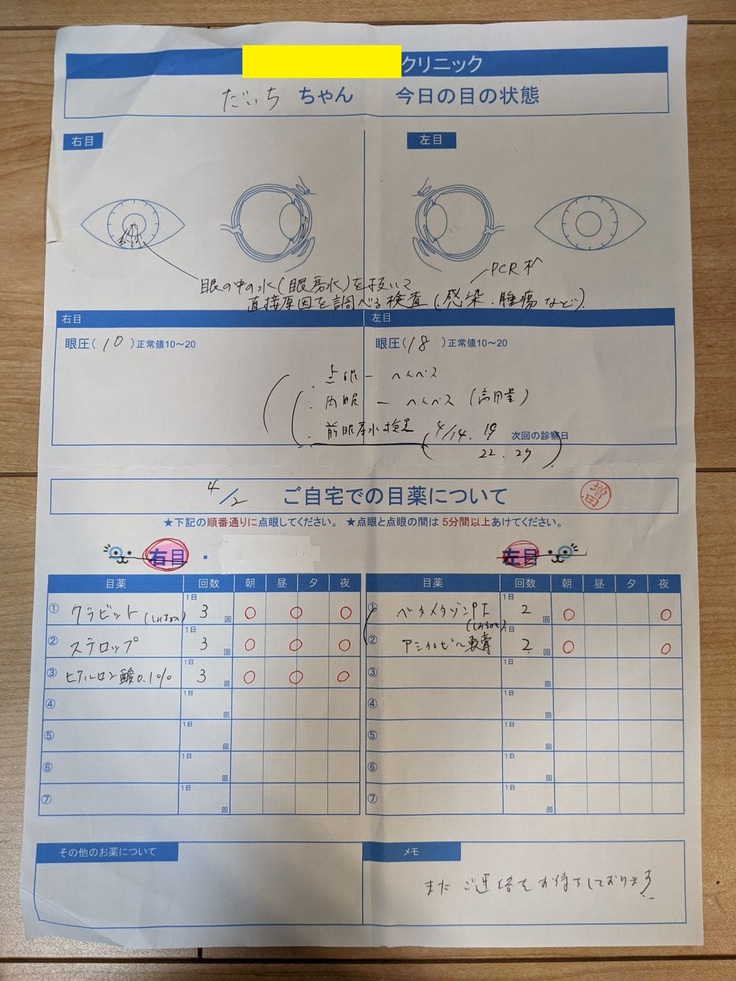 クリニック
だいち ちゃん 今日の目の状態
右目
左目
PCR
眼の中の水(眼房水)を抜いて
直接原因を調べる検査(感染・腫瘍など)
右目
左目
眼圧(10)正常値10~20
眼圧(18)正常値10~20
・点眼 ー ヘルペス
・内服 ー ヘルペス(高用量)
・前眼房水検査
4/14. 19
次回の診察日
22. 29
4/2 ご自宅での目薬について
増田
★下記の順番通りに点眼してください。 ★点眼と点眼の間は5分間以上あけてください。
右目 ・
左目
目薬 回数 朝 昼 夕 夜
目薬 回数 朝 昼 夕 夜
① クラビット 1日 3 回 ○ ○ ○
① ベタメタゾンPF 1日 2 回 ○ ○
② ステロップ 1日 3 回 ○ ○ ○
② アシクロビル軟膏 1日 2 回 ○ ○
③ ヒアルロン酸0.1% 1日 3 回 ○ ○ ○
③ 1日 回
④ 1日 回
④ 1日 回
⑤ 1日 回
⑤ 1日 回
⑥ 1日 回
⑥ 1日 回
⑦ 1日 回
⑦ 1日 回
その他のお薬について
メモ
またご連絡をお待ちしております。